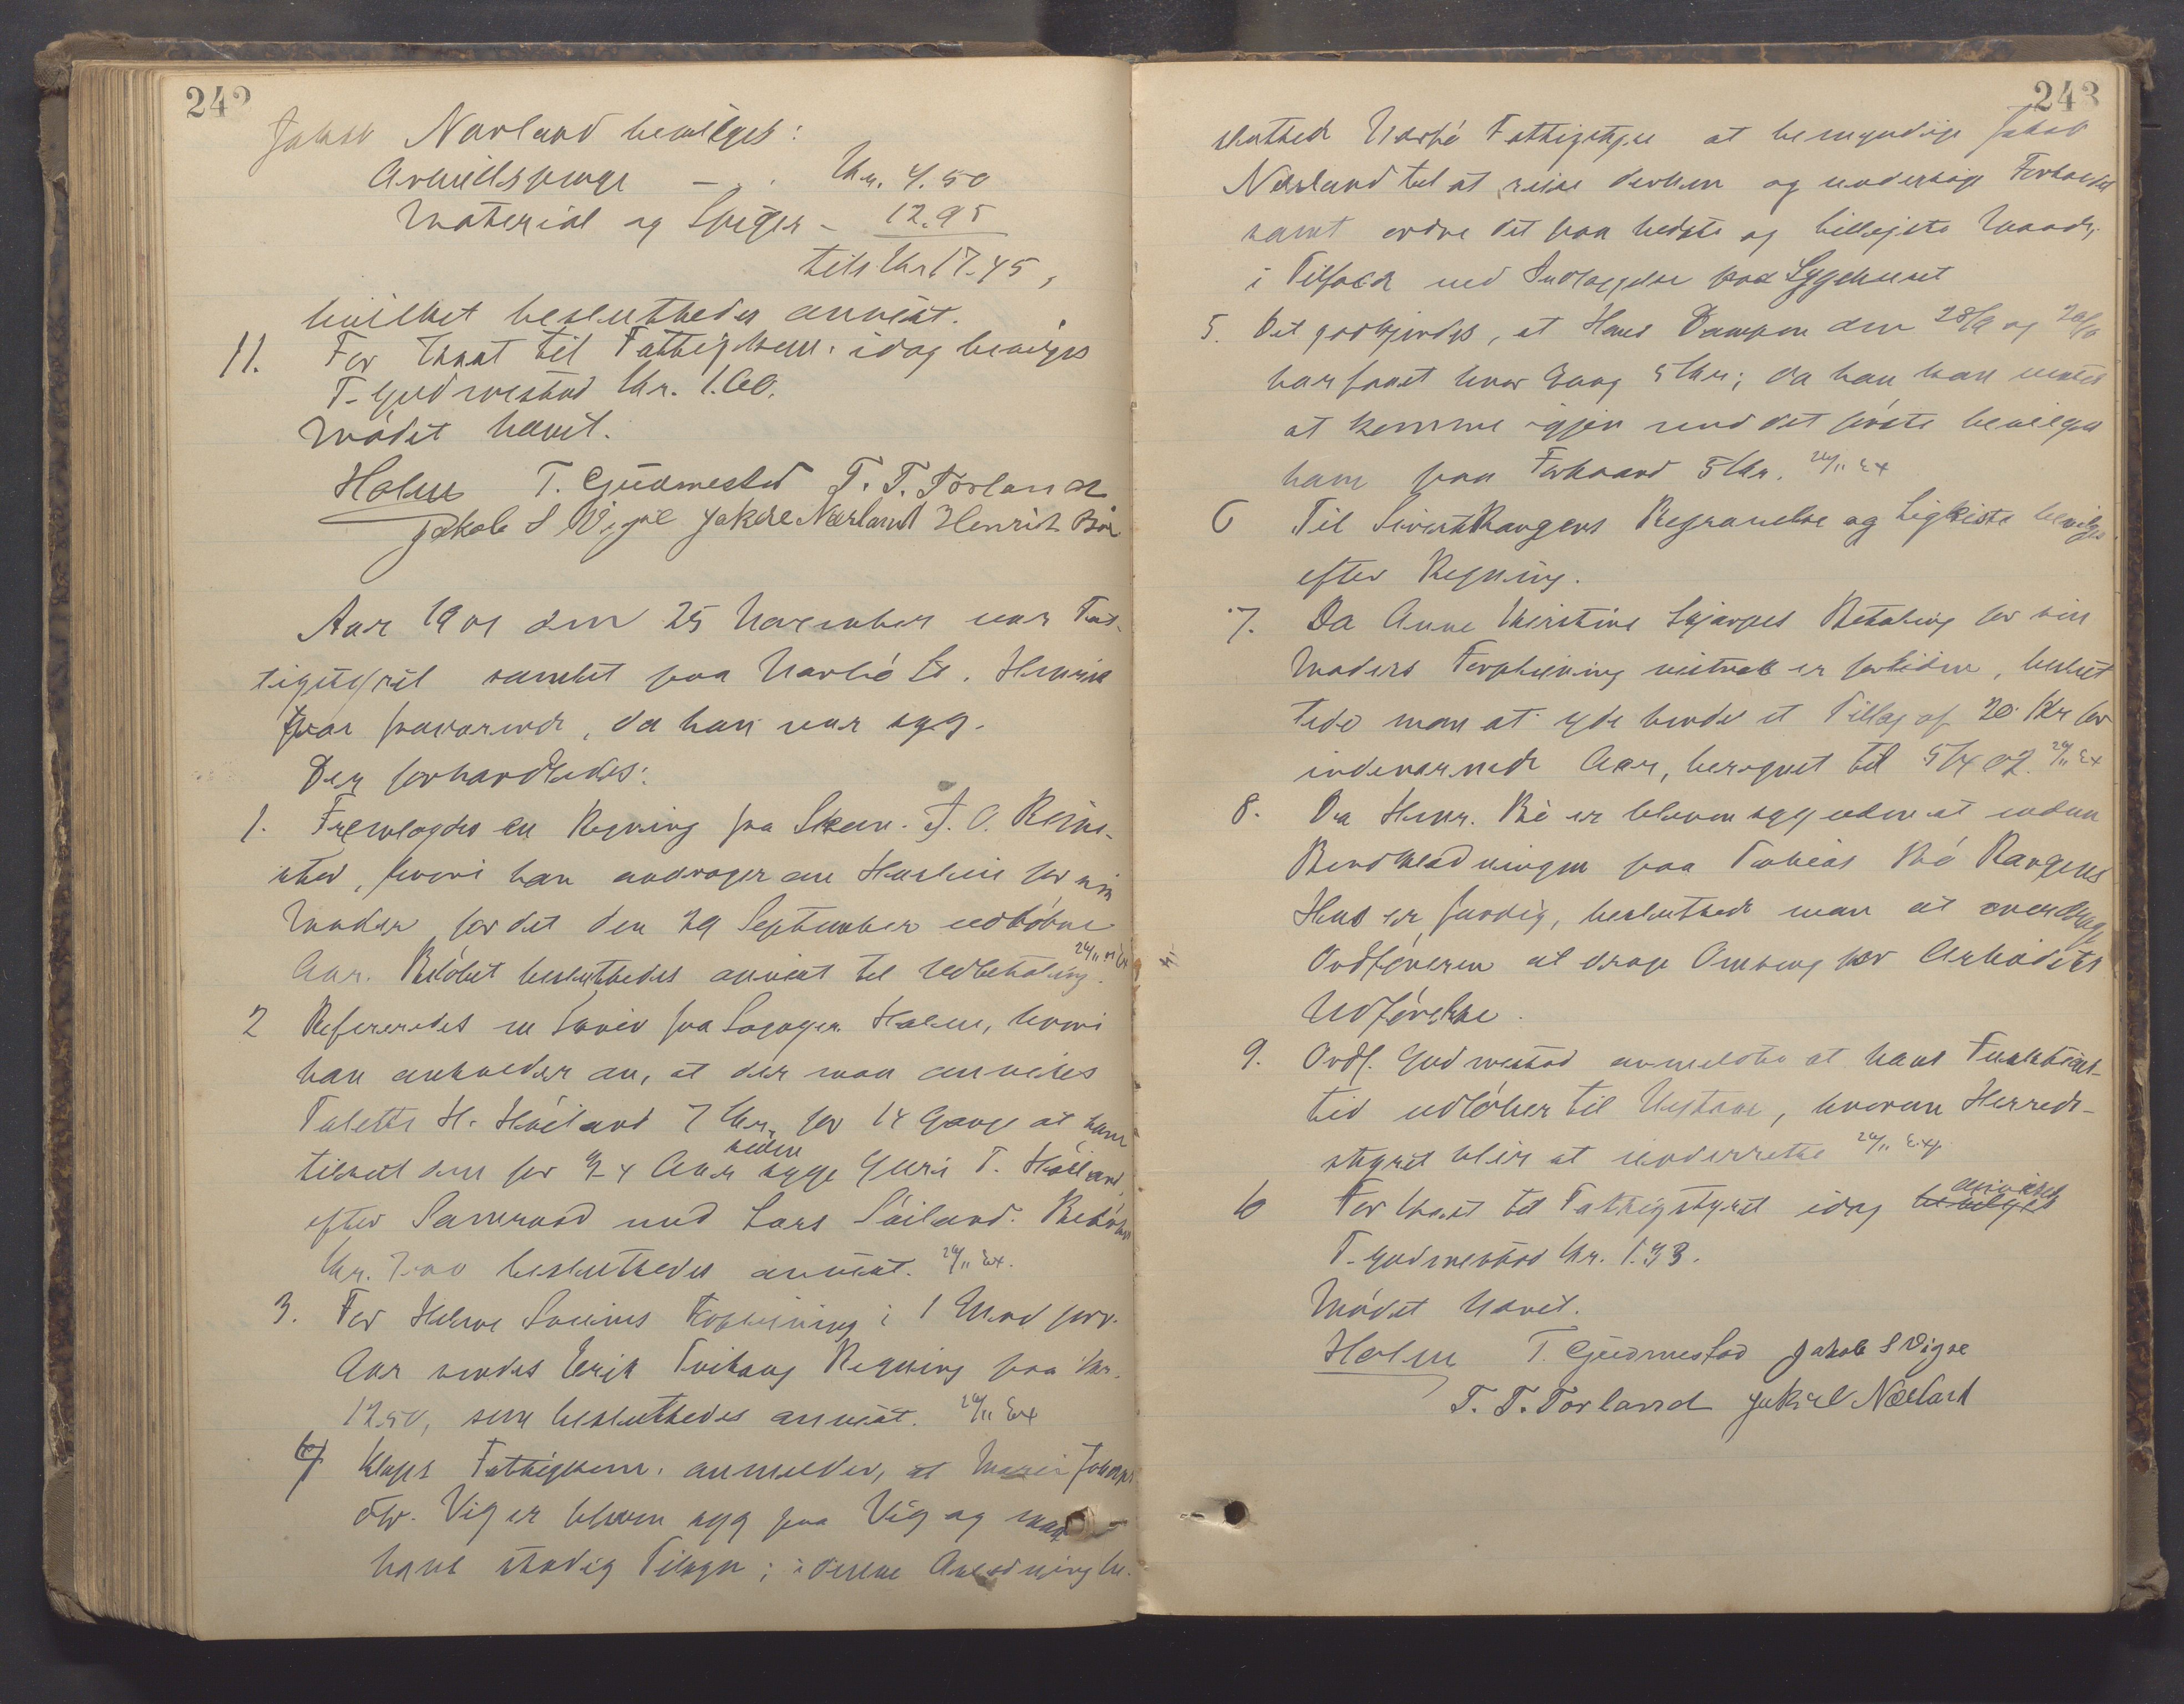 242
Jakob Nærland bevilges:
Arbeidspenge - . Kr. 4.50
Material og Spiger - 12.95
tils Kr 17.45,
hvilket besluttedes anvist.
11. For Skat til Fattigkom. idag bevilges
T. Gudmestad Kr. 1.00.
Mødet hævet.
Holm T. Gudmestad T. T. Torland
Jakob S Vigre Jakob Nærland Henrik Bø
Aar 1901 den 25 November var Fat-
tigstyret samlet paa Narbø St. Henrik
fraværende, da han var syg.
Der forhandledes:
1. Fremlagdes en Regning fra Skom. A. O. Reime-
stad, hvori han andrager om Husleie for sin
Moder for det den 29 September udløbne
Aar. Beløbet besluttedes anvist til Udbetaling. 26/11 Ex
2 Refereredes en Skriv fra Sogepr. Holm, hvori
han anholder om, at der maa anvises
Tolette H. Høiland 7 Kr. for 14 Gange at ham
tilseet den for siden Aar syge Guri T. Høiland
efter Samraad med Lars Søiland. Beløbet
Kr. 7.00 besluttedes anvist. 26/11 Ex.
3. For Helene Sveines Forpleining i 1 Mnd forr.
Aar sendes Erik Tvihaug Regning paa Kr.
12.50, som besluttedes anvist. 26/11 Ex
4 Kleps Fattigkom. anmelder, at Marie Johanns
dtr. Vig er bleven syg paa Vig og maa
have stadig Tilsyn; i denne Anledning be-
243
sluttede Narbø Fattigstyre at bemyndige Jakob
Nærland til at reise derhen og undersøge Forholdet
samt ordne det paa bedste og billigste Maade,
i Tilfælde ved Indlæggelse paa Sygehuset
5. Det godkjendes, at Hans Dampen den 28/9 og 20/10
har faaet hver Gang 5 Kr.; da han kan ventes
at komme igjen med det første bevilges
ham paa Forhaand 5 Kr. 26/11 Ex
6 Til Sivert Haugens Begravelse og Ligkiste bevilges
efter Regning.
7. Da Anne Kirstine Skjærpes Betaling for sin
Moders Forpleining er forliden, beslut
tede man at yde hende et Tillæg af 20 Kr for
indeværende Aar, beregnet til 5/4 02. 26/11 Ex
8. Da Henr. Bø er bleven syg uden at endnu
Bordklædningen paa Tobias Bø Haugens
Hus er færdig, besluttede man at overdrage
Ordføreren at drage Omsorg for Arbeidets
Udførelse.
9. Ordf. Gudmestad anmeldte at hans Funktions-
tid udløber til Nytaar, hvorom Herreds-
styret blir at underrette 26/11 Exp.
10 For Skat til Fattigstyret idag bevilges anvises
T. Gudmestad Kr. 1.33.
Mødet hævet.
Holm T. Gudmestad Jakob S Vigre
T. T. Torland Jakob Nærland